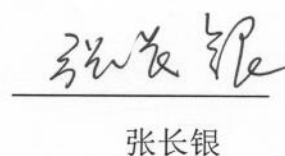 张长银
张长银